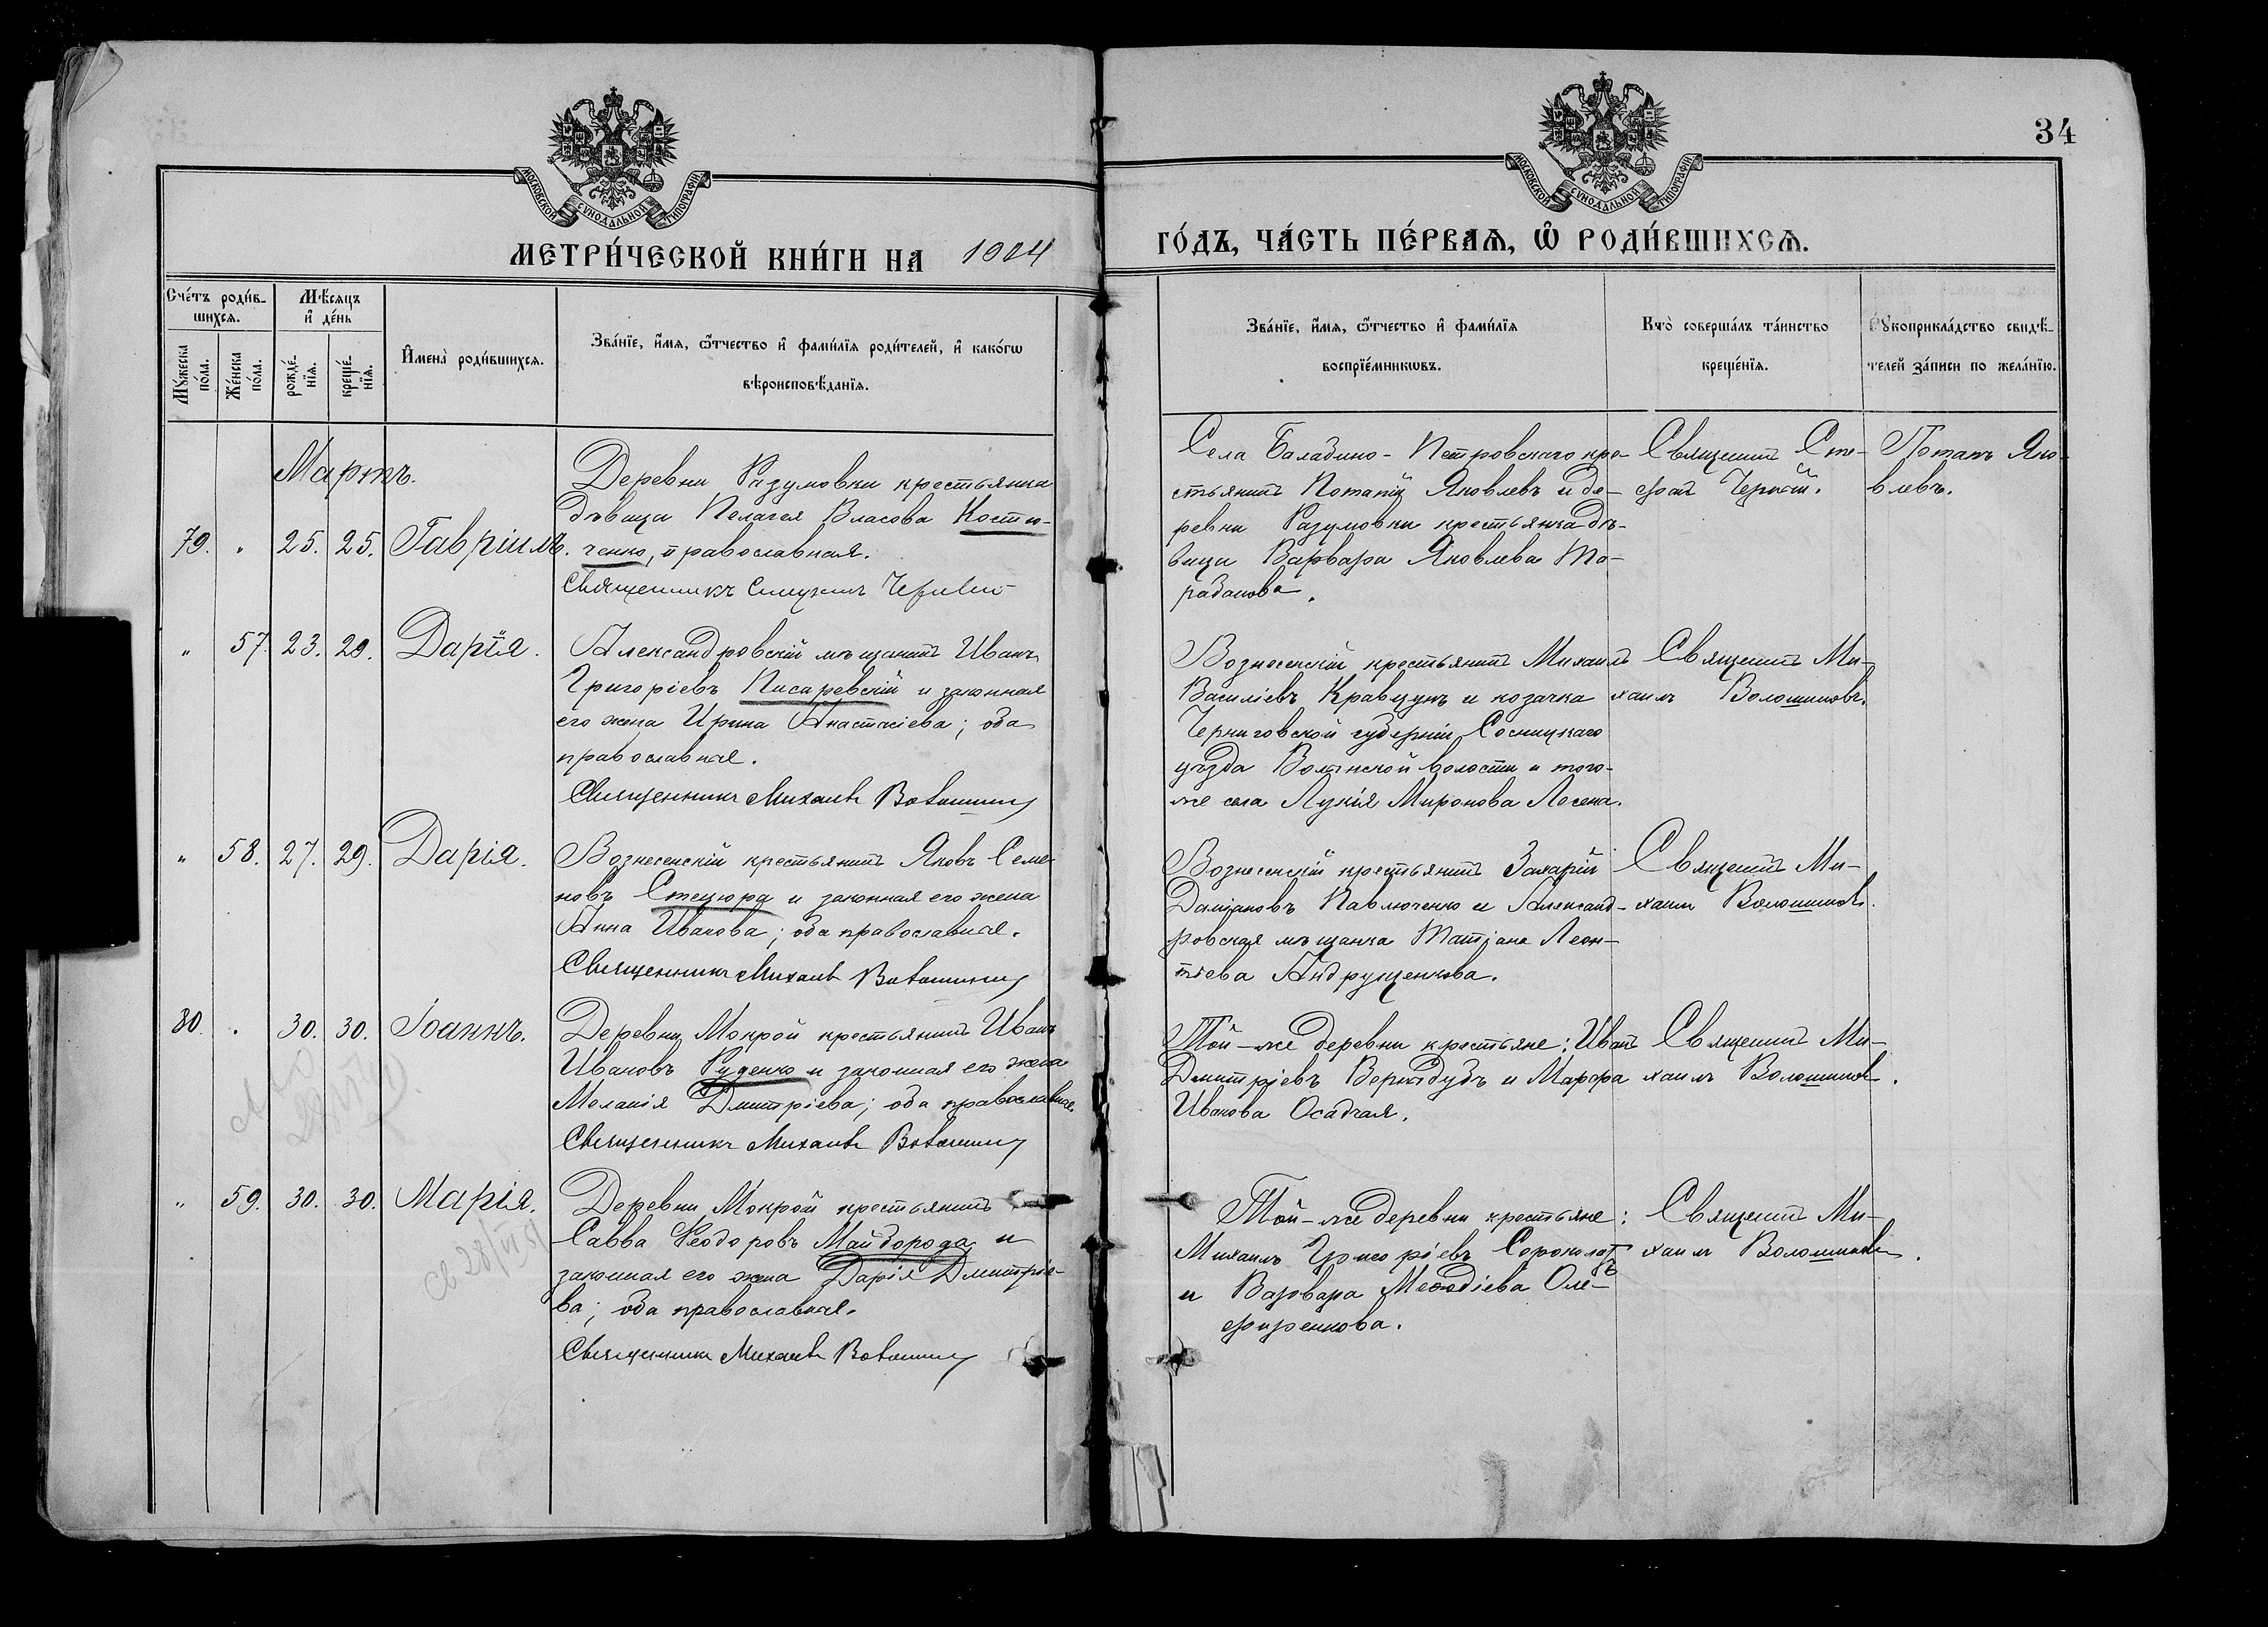 34
МОСКОВСКОЙ СѴНОДАЛЬНОЙ ТИПОГРАФІИ
МОСКОВСКОЙ СѴНОДАЛЬНОЙ ТИПОГРАФІИ
МЕТРИ́ЧЕСКОЙ КНИ́ГИ НА 1904
ГО́ДЪ, ЧА́СТЬ ПЕ́РВАѦ, Ѡ҆ РОДИ́ВШИХСѦ.
Сче́тъ роди́в-
шихсѧ.
Мꙋ́жеска
по́ла.
Же́нска
по́ла.
Мѣ́сѧцъ
и҆ де́нь
рожде́-
нїѧ.
креще́-
нїѧ.
И҆мена̀ роди́вшихсѧ.
Зва́нїе, и҆́мѧ, ѻ҆́тчество и҆ фами́лїѧ роди́телей, и҆ како́гѡ
вѣроисповѣ́данїѧ.
Зва́нїе, и҆́мѧ, ѻ҆́тчество и҆ фами́лїѧ
воспрїе́мникѡвъ.
Кто̀ соверша́лъ та́инство
креще́нїѧ.
Рꙋкоприкла́дство свидѣ́-
телей за́писи по жела́нїю.
Мартъ.
79. „ 25. 25. Гавріилъ.
Деревни Разумовки крестьянка
дѣвица Пелагея Власова Костю-
ченко, православная.
Священникъ
Села Баладино-Петровскаго кре-
стьянинъ Потапій Яковлевъ и де-
ревни Разумовки крестьянка дѣ-
вица Варвара Яковлева Та-
раданова.
Священникъ Сте-
фанъ
Потапъ Яко-
влевъ.
„ 57. 23. 29. Дарія.
Александровскій мѣщанинъ Иванъ
Григоріевъ Писаревскій и законная
его жена Ирина Анастасіева; оба
православные.
Священникъ Михаилъ Волошиновъ
Вознесенскій крестьянинъ Михаилъ
Василіевъ Кравцунъ и козачка
Черниговской губерніи Сосницкаго
уѣзда Волынской волости и того-
же села Лукія Миронова Лесена.
Священникъ Ми-
хаилъ Волошиновъ.
„ 58. 27. 29. Дарія.
Вознесенскій крестьянинъ Яковъ Семе-
новъ Стецюра и законная его жена
Анна Иванова; оба православные.
Священникъ Михаилъ Волошиновъ
Вознесенскій крестьянинъ Захарій
Даміановъ Павлюченко и Александ-
ровская мѣщанка Татіана Леон-
тіева Андрущенкова.
Священникъ Ми-
хаилъ Волошиновъ.
80. „ 30. 30. Іоаннъ.
Деревни Мокрой крестьянинъ Иванъ
Ивановъ Руденко и законная его жена
Меланія Дмитріева; оба православные.
Священникъ Михаилъ Волошиновъ
Той-же деревни крестьяне: Иванъ
Дмитріевъ Вернидубъ и Марфа
Иванова Осадчая.
Священникъ Ми-
хаилъ Волошиновъ.
„ 59. 30. 30. Марія.
Деревни Мокрой крестьянинъ
Савва Ѳеодоровъ Майборода и
законная его жена Дарія Дмитріе-
ва; оба православные.
Священникъ Михаилъ Волошиновъ
Той-же деревни крестьяне:
Михаилъ Григоріевъ Сороколатъ
и Варвара Меѳодіева Оле-
фиренкова.
Священникъ Ми-
хаилъ Волошиновъ.